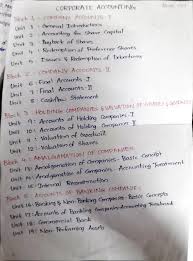 CORPORATE ACCOUNTING
Block 1 - COMPANY ACCOUNTS - I
Unit 1 : General Introductions
Unit 2 : Accounting for Share Capital
Unit 3 : Buyback of Shares
Unit 4 : Redemption of Preference Shares
Unit 5 : Issues & Redemption of Debentures
Block 2 - COMPANY ACCOUNTS - II
Unit 6 : Final Accounts - I
Unit 7 : Final Accounts - II
Unit 8 : Cashflow Statement
Block 3 - HOLDING COMPANIES & VALUATION OF
Unit 9 : Accounts of Holding Companies - I
Unit 10 : Accounts of Holding Companies - II
Unit 11 : Valuation of Goodwill
Unit 12 : Valuation of Shares
Block 4 - AMALGAMATION OF COMPANIES
Unit 13 : Amalgamation of Companies - Basic Concept
Unit 14 : Amalgamation of Companies - Accounting Treatment
Unit 15 : Internal Reconstruction
Block 5 - ACCOUNTS OF BANKING COMPANIES
Unit 16 : Banking & Non-Banking Companies - Basic Concepts
Unit 17 : Accounts of Banking Companies - Accounting Treatment
Unit 18 : Commercial Bank
Unit 19 : Non-Performing Assets